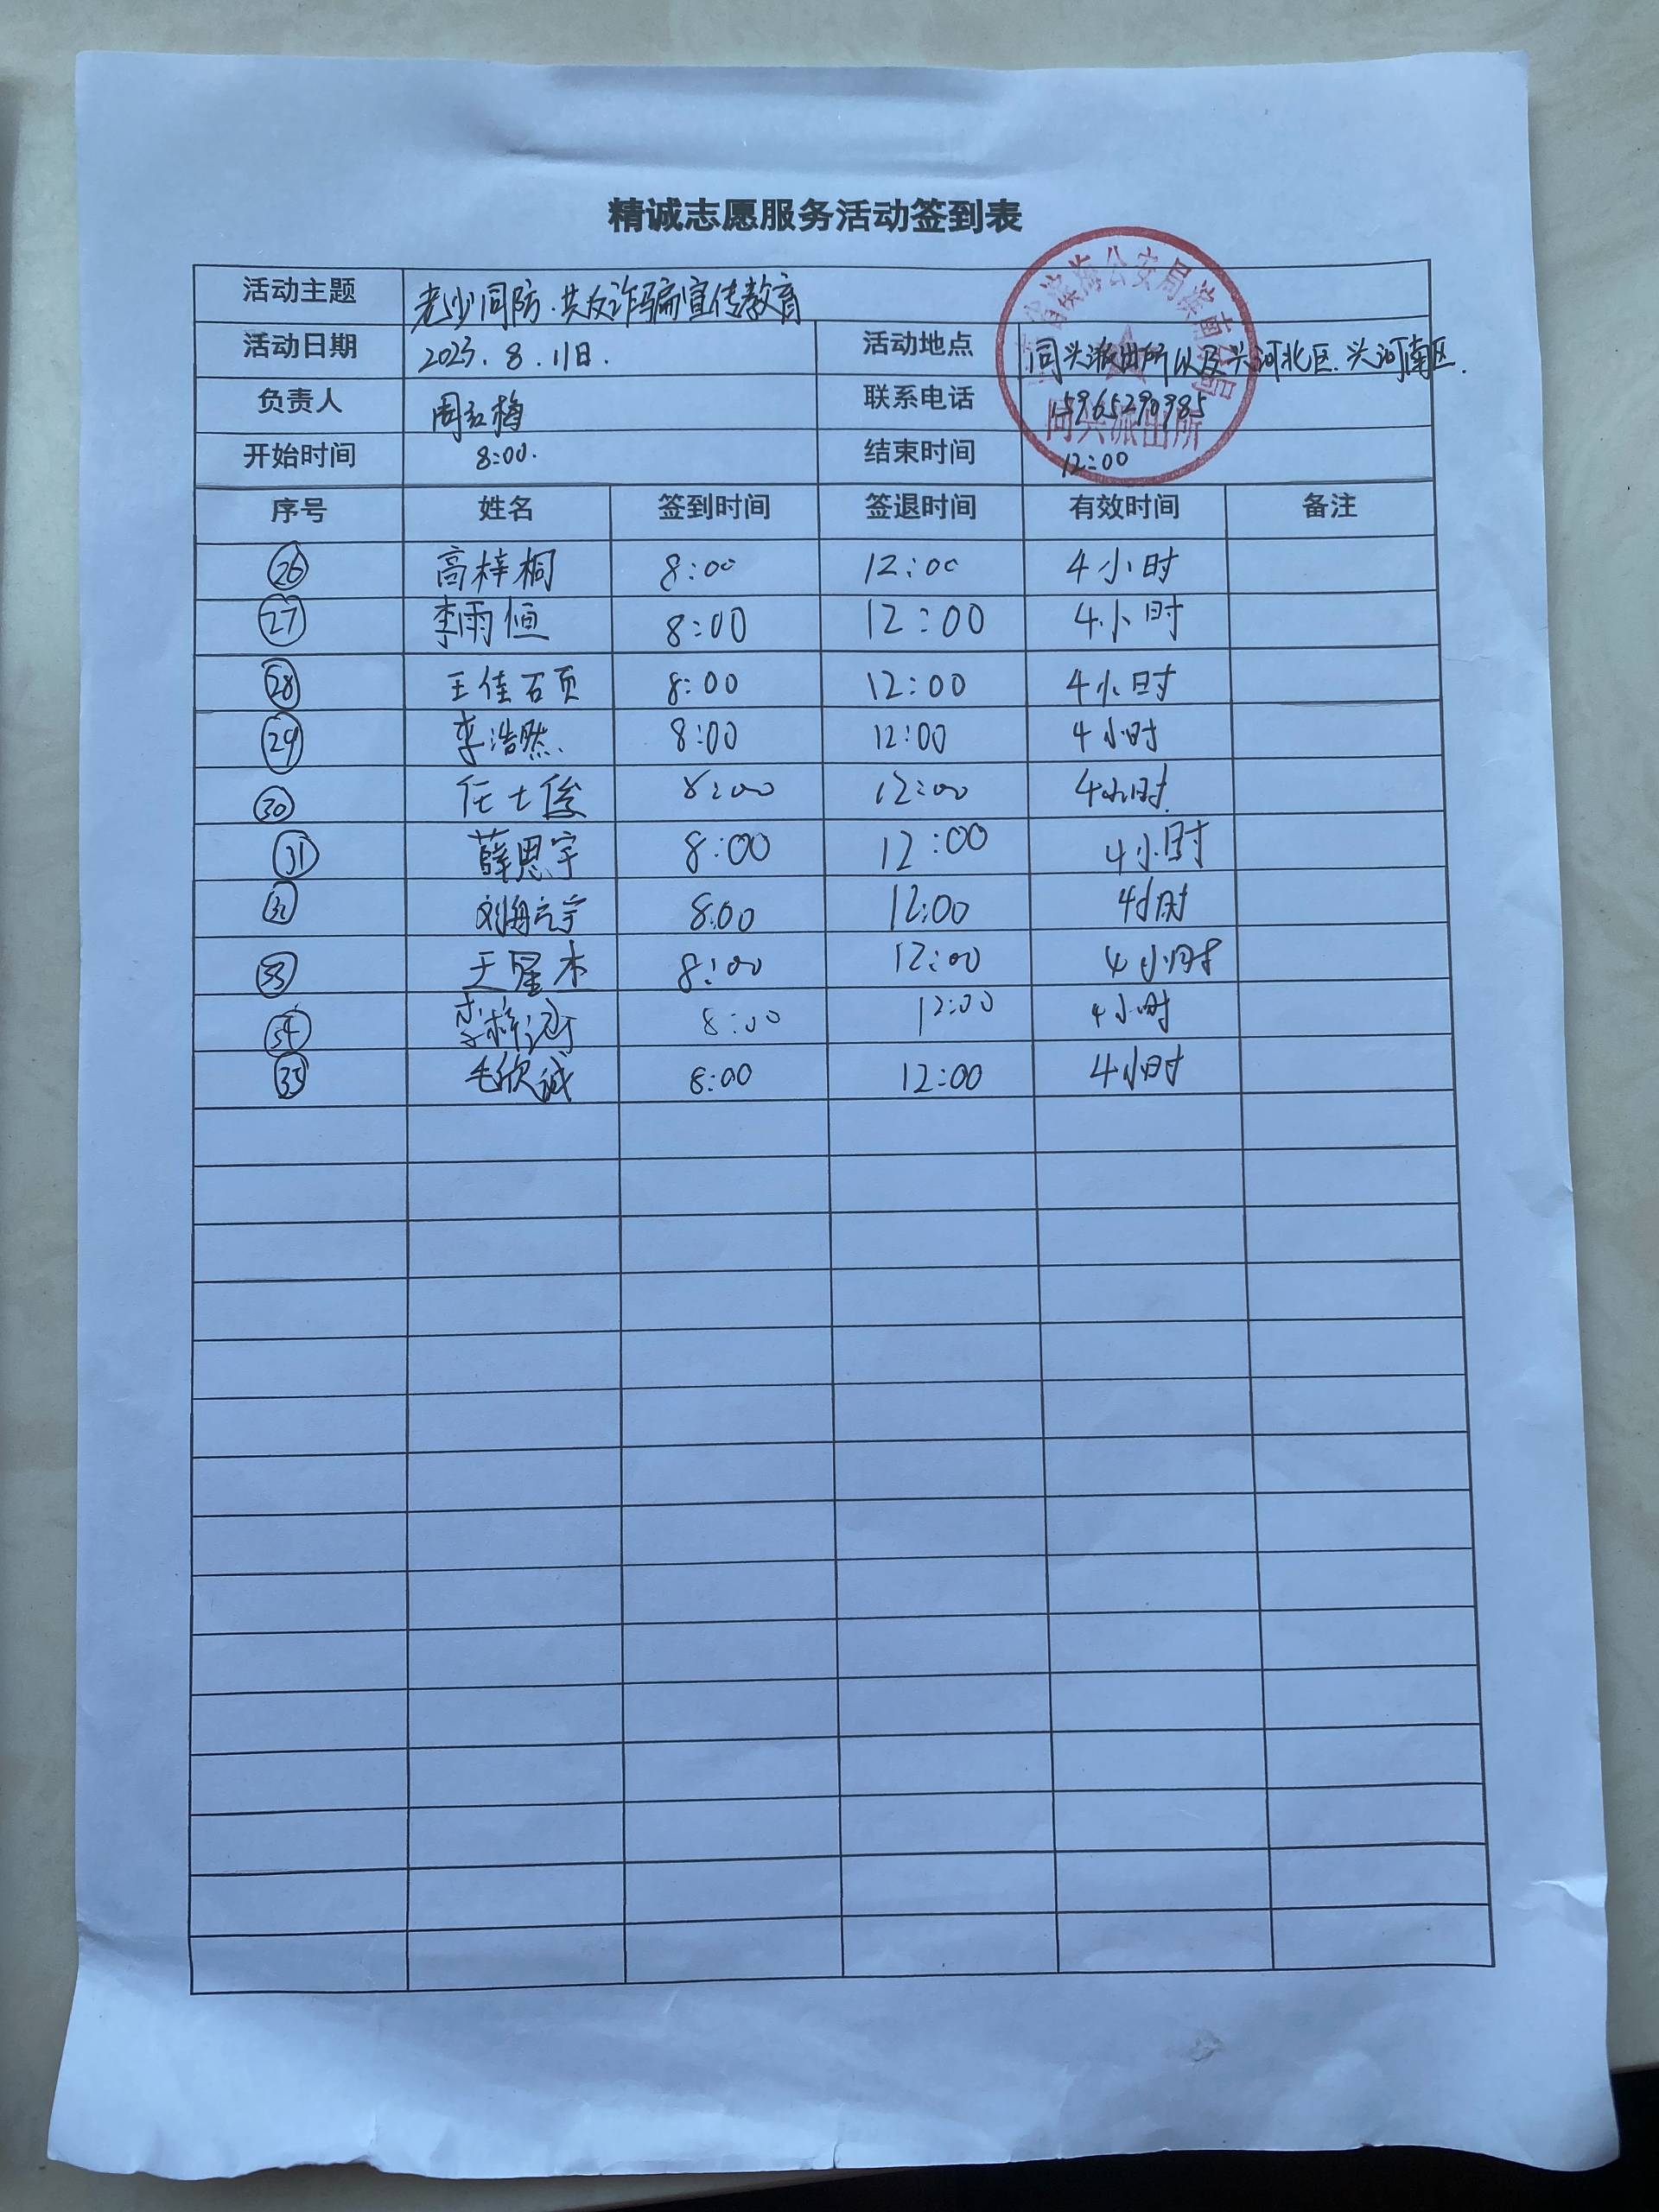 精诚志愿服务活动签到表
活动主题 老少同防·共反诈骗宣传教育
活动日期 2023.8.11日. 活动地点 同兴派出所以及兴河北区.兴河南区.
负责人 周红梅 联系电话 15965290985
开始时间 8:00. 结束时间 12:00
省滨海公安局滨南分局
同兴派出所
序号 姓名 签到时间 签退时间 有效时间 备注
26 高梓桐 8:00 12:00 4小时
27 李雨恒 8:00 12:00 4小时
28 王佳硕 8:00 12:00 4小时
29 李浩然 8:00 12:00 4小时
30 任士俊 8:00 12:00 4小时
31 薛思宇 8:00 12:00 4小时
32 刘海宇 8:00 12:00 4小时
33 王星杰 8:00 12:00 4小时
34 李梓 8:00 12:00 4小时
35 毛欣诚 8:00 12:00 4小时